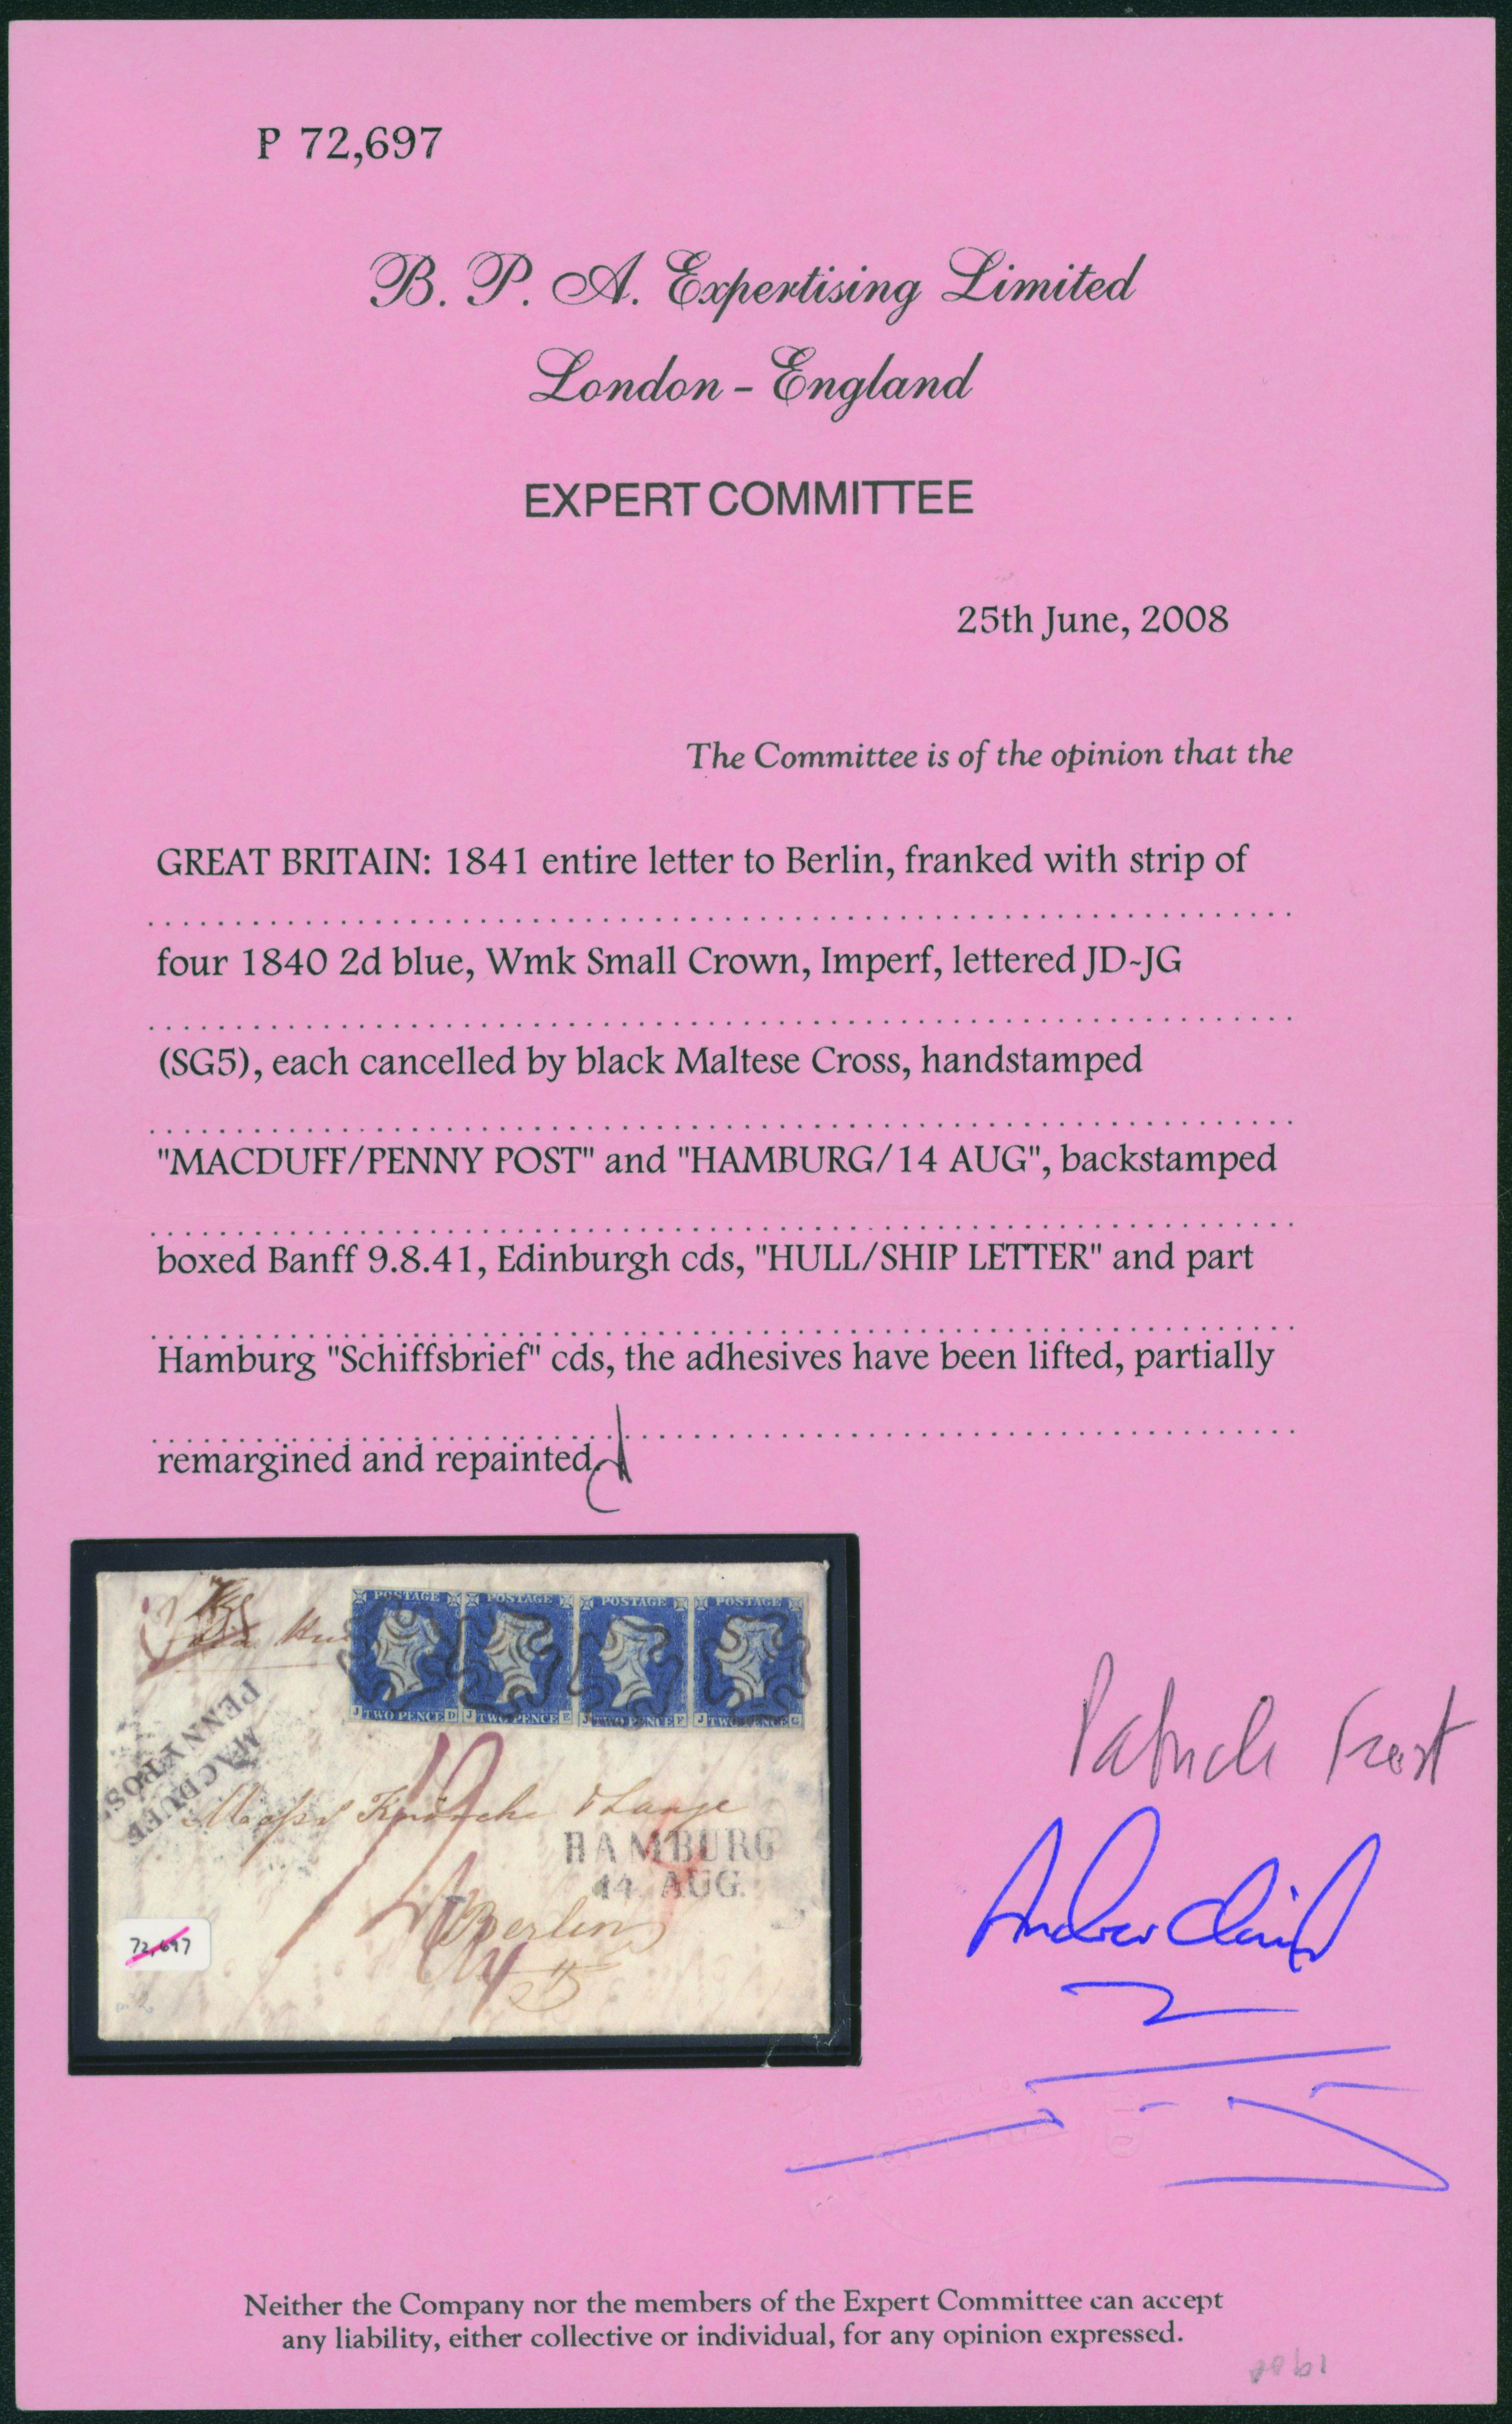 P 72,697
B. P. A. Expertising Limited
London - England
EXPERT COMMITTEE
25th June, 2008
The Committee is of the opinion that the
GREAT BRITAIN: 1841 entire letter to Berlin, franked with strip of
four 1840 2d blue, Wmk Small Crown, Imperf, lettered JD-JG
(SG5), each cancelled by black Maltese Cross, handstamped
"MACDUFF/PENNY POST" and "HAMBURG/14 AUG", backstamped
boxed Banff 9.8.41, Edinburgh cds, "HULL/SHIP LETTER" and part
Hamburg "Schiffsbrief" cds, the adhesives have been lifted, partially
remargined and repainted.
POSTAGE POSTAGE POSTAGE POSTAGE
J TWO PENCE D J TWO PENCE E J TWO PENCE F J TWO PENCE G
MACDUFF
PENNY POS
& Lange
HAMBURG
14 AUG.
Berlin
72,697
Patrick Frost
Neither the Company nor the members of the Expert Committee can accept
any liability, either collective or individual, for any opinion expressed.